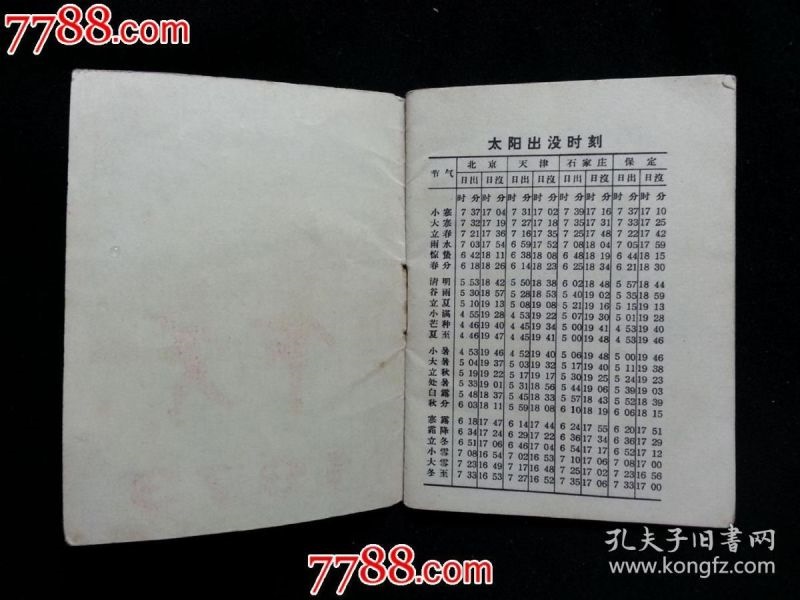 7788.com
太阳出没时刻
节气 北京 天津 石家庄 保定
日出 日沒 日出 日沒 日出 日沒 日出 日沒
时 分 时 分 时 分 时 分
小寒 7 37 17 04 7 31 17 02 7 39 17 16 7 37 17 10
大寒 7 32 17 19 7 27 17 18 7 35 17 31 7 33 17 25
立春 7 21 17 36 7 16 17 35 7 25 17 48 7 22 17 42
雨水 7 03 17 54 6 59 17 52 7 08 18 04 7 05 17 59
惊蛰 6 42 18 11 6 38 18 08 6 48 18 19 6 44 18 15
春分 6 18 18 26 6 14 18 23 6 25 18 34 6 21 18 30
清明 5 53 18 42 5 50 18 38 6 02 18 48 5 57 18 44
谷雨 5 30 18 57 5 28 18 53 5 40 19 02 5 35 18 59
立夏 5 10 19 13 5 08 19 08 5 21 19 16 5 15 19 13
小满 4 55 19 28 4 53 19 22 5 07 19 30 5 01 19 28
芒种 4 46 19 40 4 45 19 34 5 00 19 41 4 53 19 40
夏至 4 46 19 47 4 45 19 41 5 00 19 48 4 53 19 46
小暑 4 53 19 46 4 52 19 40 5 06 19 48 5 00 19 46
大暑 5 04 19 37 5 03 19 32 5 17 19 40 5 11 19 38
立秋 5 19 19 22 5 17 19 17 5 30 19 25 5 24 19 23
处暑 5 33 19 01 5 31 18 56 5 44 19 06 5 38 19 03
白露 5 48 18 37 5 45 18 33 5 57 18 43 5 52 18 39
秋分 6 03 18 11 5 59 18 08 6 10 18 19 6 06 18 15
寒露 6 18 17 47 6 14 17 44 6 24 17 55 6 20 17 51
霜降 6 34 17 24 6 29 17 22 6 36 17 34 6 36 17 29
立冬 6 51 17 06 6 46 17 04 6 54 17 17 6 52 17 12
小雪 7 08 16 54 7 02 16 53 7 10 17 06 7 08 17 00
大雪 7 23 16 49 7 17 16 48 7 25 17 02 7 23 16 56
冬至 7 33 16 53 7 27 16 52 7 35 17 06 7 33 17 00
孔夫子旧书网
www.kongfz.com
7788.com